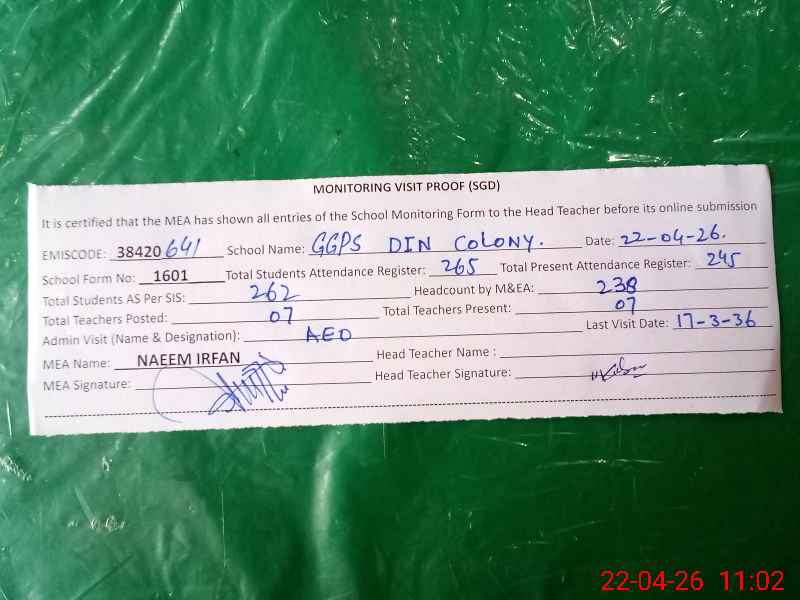 MONITORING VISIT PROOF (SGD)
It is certified that the MEA has shown all entries of the School Monitoring Form to the Head Teacher before its online submission
EMISCODE: 38420641 School Name: GGPS DIN COLONY. Date: 22-04-26.
School Form No: 1601 Total Students Attendance Register: 265 Total Present Attendance Register: 245
Total Students AS Per SIS: 262 Headcount by M&EA: 238
Total Teachers Posted: 07 Total Teachers Present: 07
Admin Visit (Name & Designation): AEO Last Visit Date: 17-3-36
MEA Name: NAEEM IRFAN Head Teacher Name :
MEA Signature: Head Teacher Signature:
22-04-26 11:02